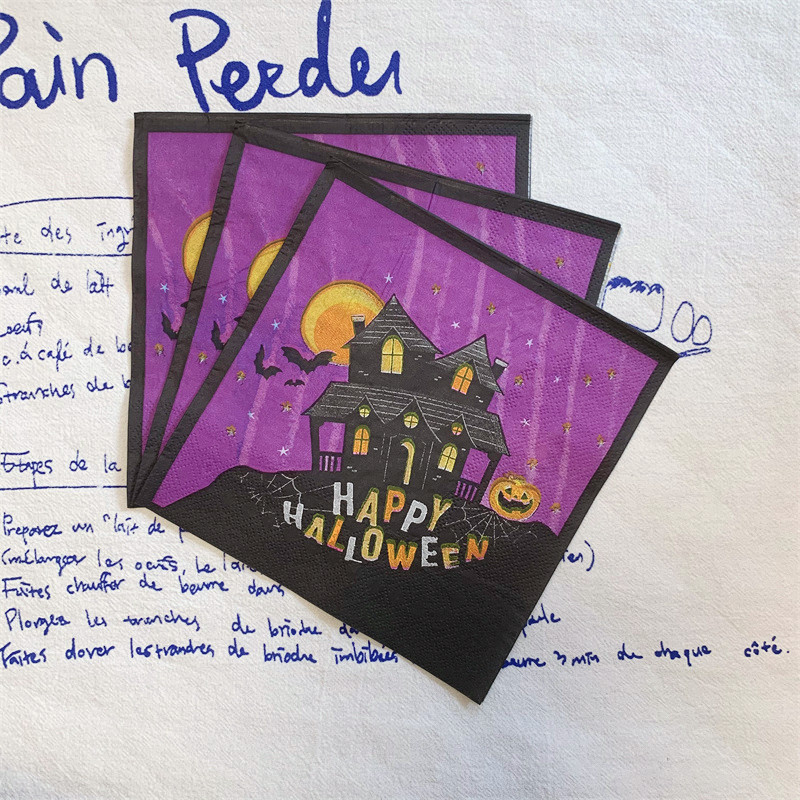 Pain Perdu
te des ingr
de lait
oeufs
c. à café de be
tranches de b
Etapes de la
Preparez un "lait de p
(mélanger les oeufs, le
Faites chauffer de beurre dans
Plongez les tranches de brioche da
Faites dorer les tranches de brioche imbibées beurre 3 min de chaque côté.
HAPPY
HALLOWEEN